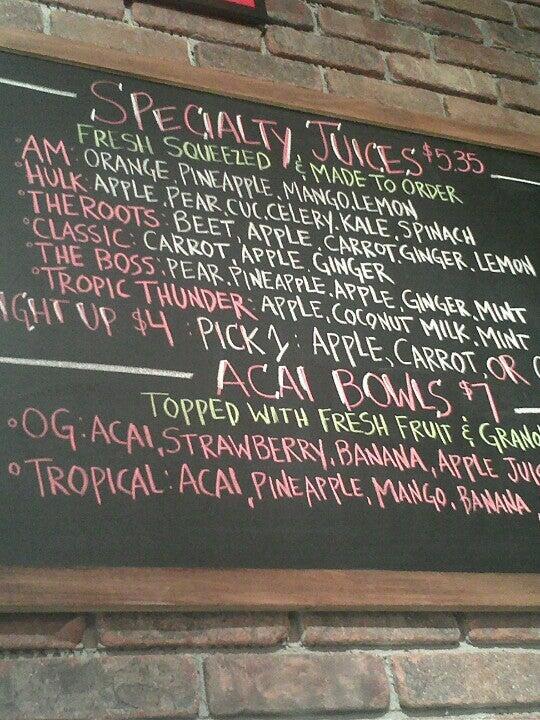 SPECIALTY JUICES $5.35
FRESH SQUEEZED & MADE TO ORDER
°AM: ORANGE, PINEAPPLE, MANGO, LEMON
°HULK: APPLE, PEAR, CUC, CELERY, KALE, SPINACH
°THE ROOTS: BEET, APPLE, CARROT, GINGER, LEMON
°CLASSIC: CARROT, APPLE, GINGER
°THE BOSS: PEAR, PINEAPPLE, APPLE, GINGER, MINT
°TROPIC THUNDER: APPLE, COCONUT MILK, MINT
IGHT UP $4 : PICK 1: APPLE, CARROT, OR
ACAI BOWLS $7
TOPPED WITH FRESH FRUIT & GRANO
°OG: ACAI, STRAWBERRY, BANANA, APPLE JUIC
°TROPICAL: ACAI, PINEAPPLE, MANGO, BANANA,